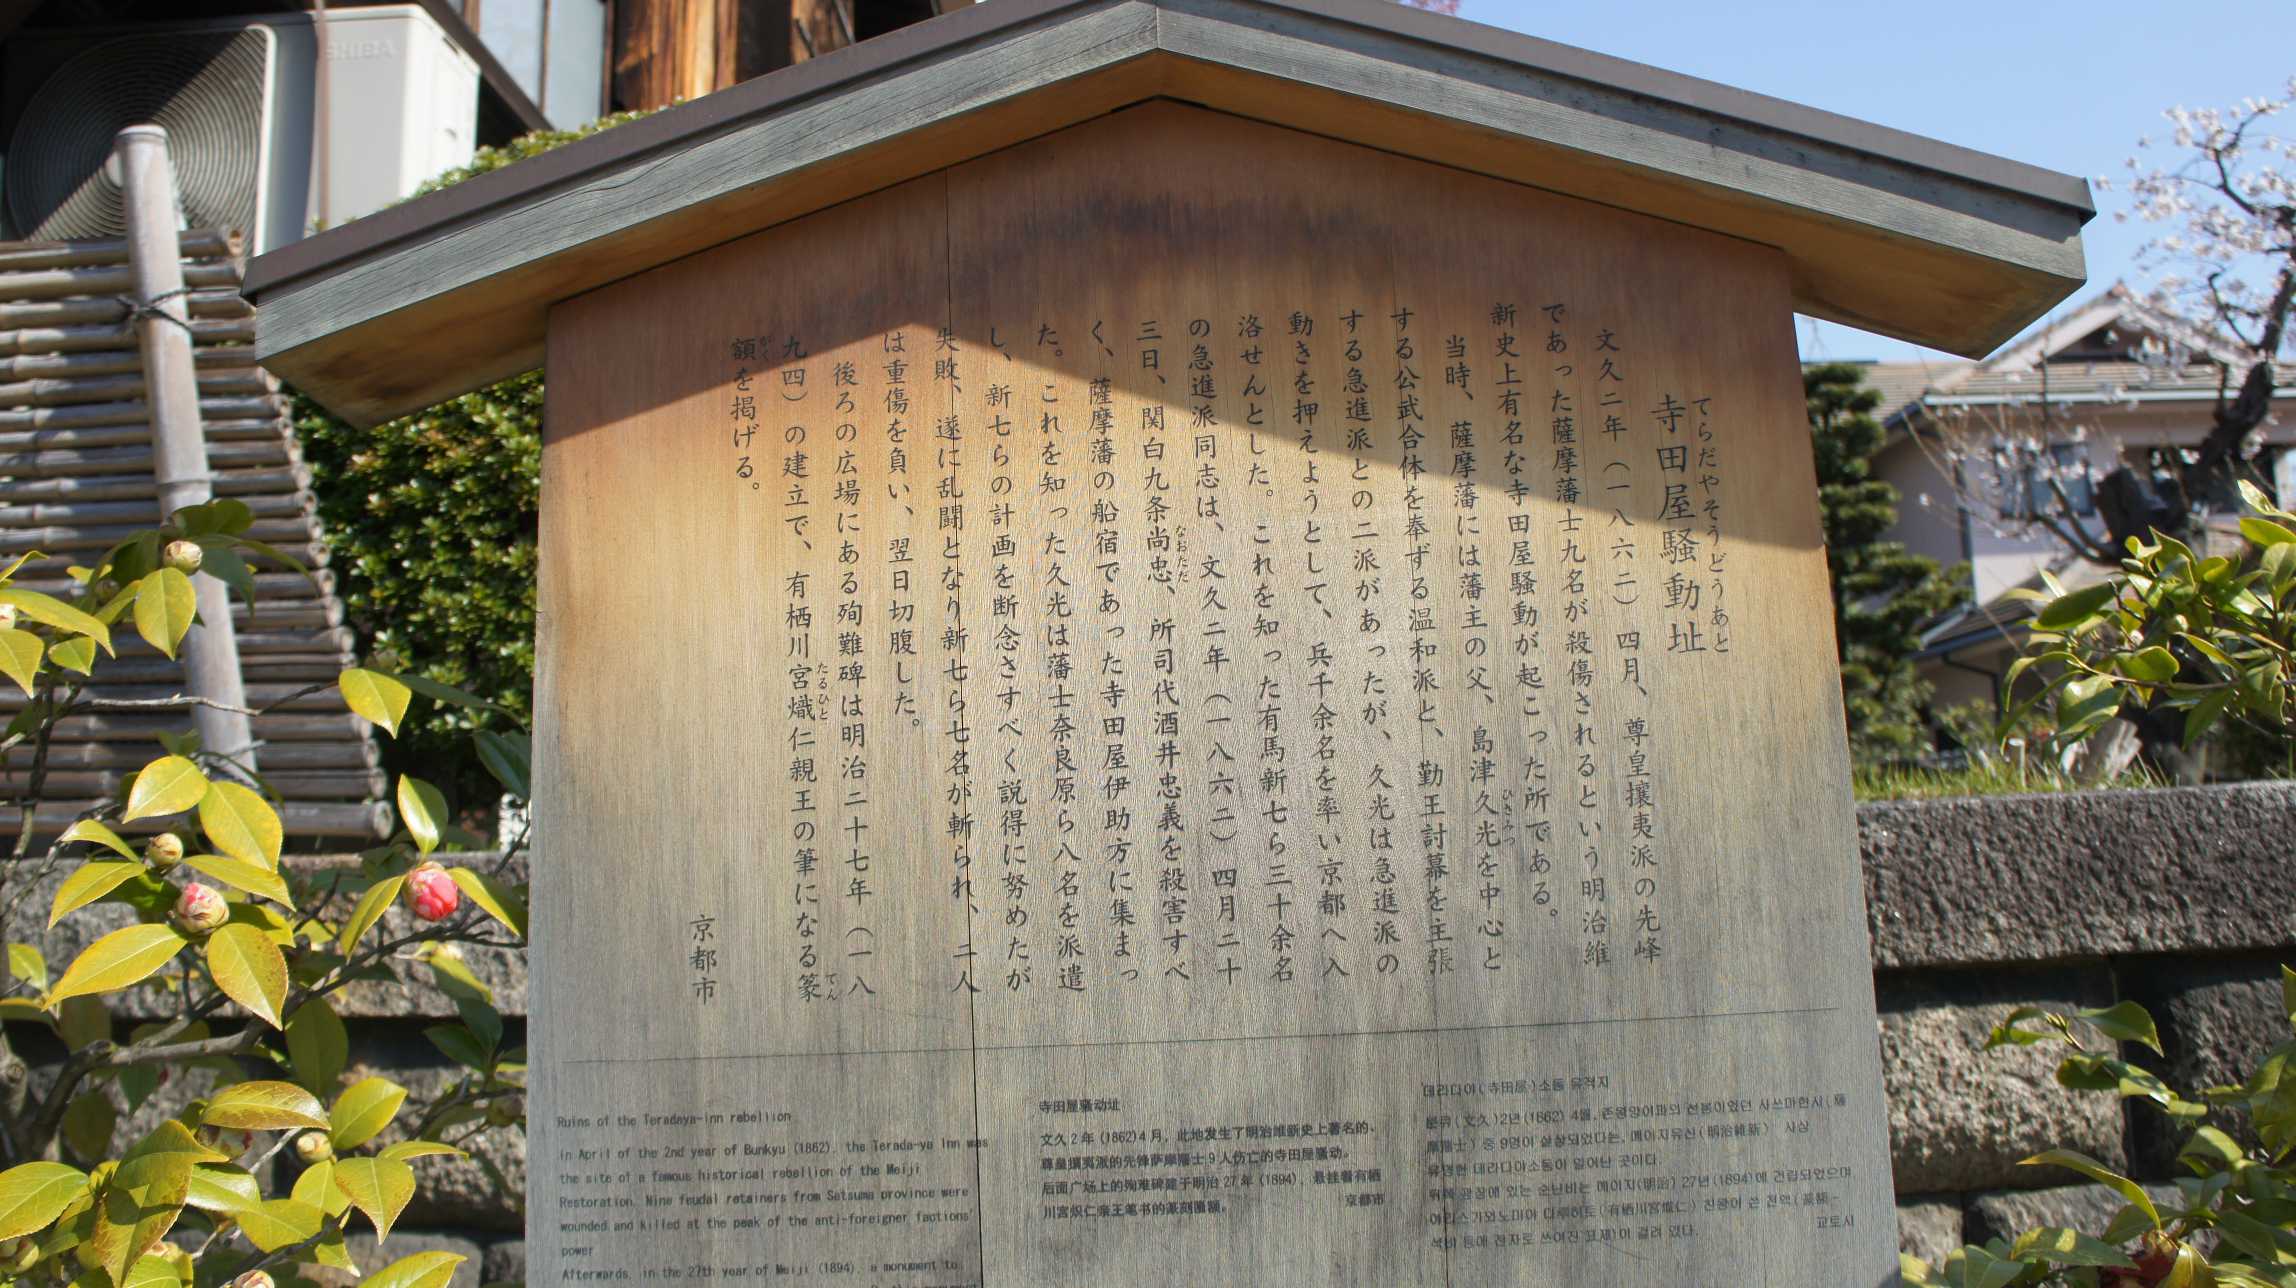 てらだやそうどうあと
寺田屋騒動址
文久二年（一八六二）四月、尊皇攘夷派の先峰
であった薩摩藩士九名が殺傷されるという明治維
新史上有名な寺田屋騒動が起こった所である。
当時、薩摩藩には藩主の父、島津久光を中心と
ひさみつ
する公武合体を奉ずる温和派と、勤王討幕を主張
する急進派との二派があったが、久光は急進派の
動きを押えようとして、兵千余名を率い京都へ入
洛せんとした。これを知った有馬新七ら三十余名
の急進派同志は、文久二年（一八六二）四月二十
三日、関白九条尚忠、所司代酒井忠義を殺害すべ
なおただ
く、薩摩藩の船宿であった寺田屋伊助方に集まっ
た。これを知った久光は藩士奈良原ら八名を派遣
し、新七らの計画を断念さすべく説得に努めたが
失敗、遂に乱闘となり新七ら七名が斬られ、二人
は重傷を負い、翌日切腹した。
後ろの広場にある殉難碑は明治二十七年（一八
九四）の建立で、有栖川宮熾仁親王の筆になる篆
たるひと
てん
額を掲げる。
がく
京都市
Ruins of the Teradaya-inn rebellion
in April of the 2nd year of Bunkyu (1862), the Terada-ya Inn was
the site of a famous historical rebellion of the Meiji
Restoration. Nine feudal retainers from Satsuma province were
wounded and killed at the peak of the anti-foreigner factions'
power
Afterwards, in the 27th year of Meiji (1894), a monument to
寺田屋骚动址
文久2年(1862)4月，此地发生了明治维新史上著名的、
尊皇攘夷派的先锋萨摩藩士9人伤亡的寺田屋骚动。
后面广场上的殉难碑建于明治27年(1894)，悬挂着有栖
川宫炽仁亲王笔书的篆刻匾额。
京都市
데라다야(寺田屋)소동 유적지
분큐(文久)2년(1862) 4월, 존왕양이파의 선봉이었던 사쓰마한시(薩
摩藩士) 중 9명이 살상되었다는, 메이지유신(明治維新) 사상
유명한 데라다야소동이 일어난 곳이다.
뒤쪽 광장에 있는 순난비는 메이지(明治) 27년(1894)에 건립되었으며
아리스가와노미야 다루히토(有栖川宮熾仁) 친왕이 쓴 전액(篆額-
석비 등에 전자로 쓰여진 표제)이 걸려 있다.
교토시